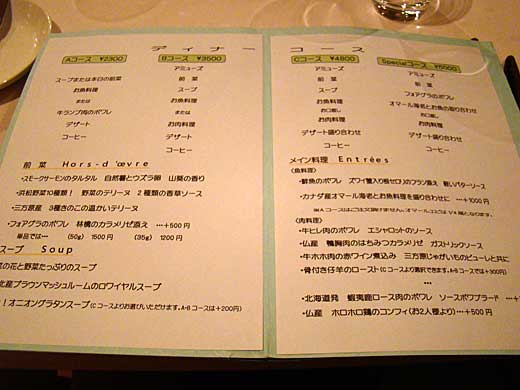 ディナー コース
Aコース ¥2300
スープまたは本日の前菜
お魚料理
または
牛ランプ肉のポワレ
デザート
コーヒー
Bコース ¥3500
アミューズ
前菜
スープ
お魚料理
または
お肉料理
デザート
コーヒー
前菜 Hors-d'œvre
・スモークサーモンのタルタル 自然薯とウズラ卵 山葵の香り
・浜松野菜10種類! 野菜のテリーヌ 2種類の香草ソース
・三方原産 3種きのこの温かいテリーヌ
・フォアグラのポワレ 林檎のカラメリゼ添え …+500円
単品では… (50g) 1500円 (35g) 1200円
スープ Soup
菜の花と野菜たっぷりのスープ
北産ブラウンマッシュルームのロワイヤルスープ
!オニオングラタンスープ(Cコースよりお選びいただけます。A・Bコースは+200円)
Cコース ¥4800
アミューズ
前菜
スープ
お魚料理
お口直し
お肉料理
デザート盛り合わせ
コーヒー
Specialコース ¥6000
アミューズ
前菜
フォアグラのポワレ
オマール海老とお魚の盛り合わせ
お口直し
お肉料理
デザート盛り合わせ
コーヒー
メイン料理 Entrées
(魚料理)
・鮮魚のポワレ ズワイ蟹入り根セロリのフラン添え 軽いバターソース
・カナダ産オマール海老とお魚料理を盛り合わせに …+1000円
(肉料理)
・牛ヒレ肉のポワレ エシャロットのソース
・仏産 鴨胸肉のはちみつカラメリゼ ガストリックソース
・牛ホホ肉の赤ワイン煮込み 三方原じゃがいものピューレと共に
・骨付き仔羊のロースト(Cコースより選択できます。A・Bコースでは+300円)
…
・北海道発 蝦夷鹿ロース肉のポワレ ソースポワブラード …+500円
・仏産 ホロホロ鶏のコンフィ(お2人種より)…+500円